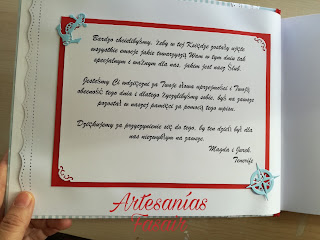 Bardzo chcielibyśmy, żeby w tej Księdze zostały ujęte
wszystkie emocje jakie towarzyszą Wam w tym dniu tak
specjalnym i ważnym dla nas, jakim jest nasz Ślub.
Jesteśmy Ci wdzięczni za Twoje słowa uprzejmości i Twoją
obecność tego dnia i dlatego życzylibyśmy sobie, być na zawsze
pozostał w naszej pamięci za pomocą tego wpisu.
Dziękujemy za przyczynienie się do tego, by ten dzień był dla
nas niezwykłym na zawsze.
Magda i Jurek.
Teneryfa
Artesanías